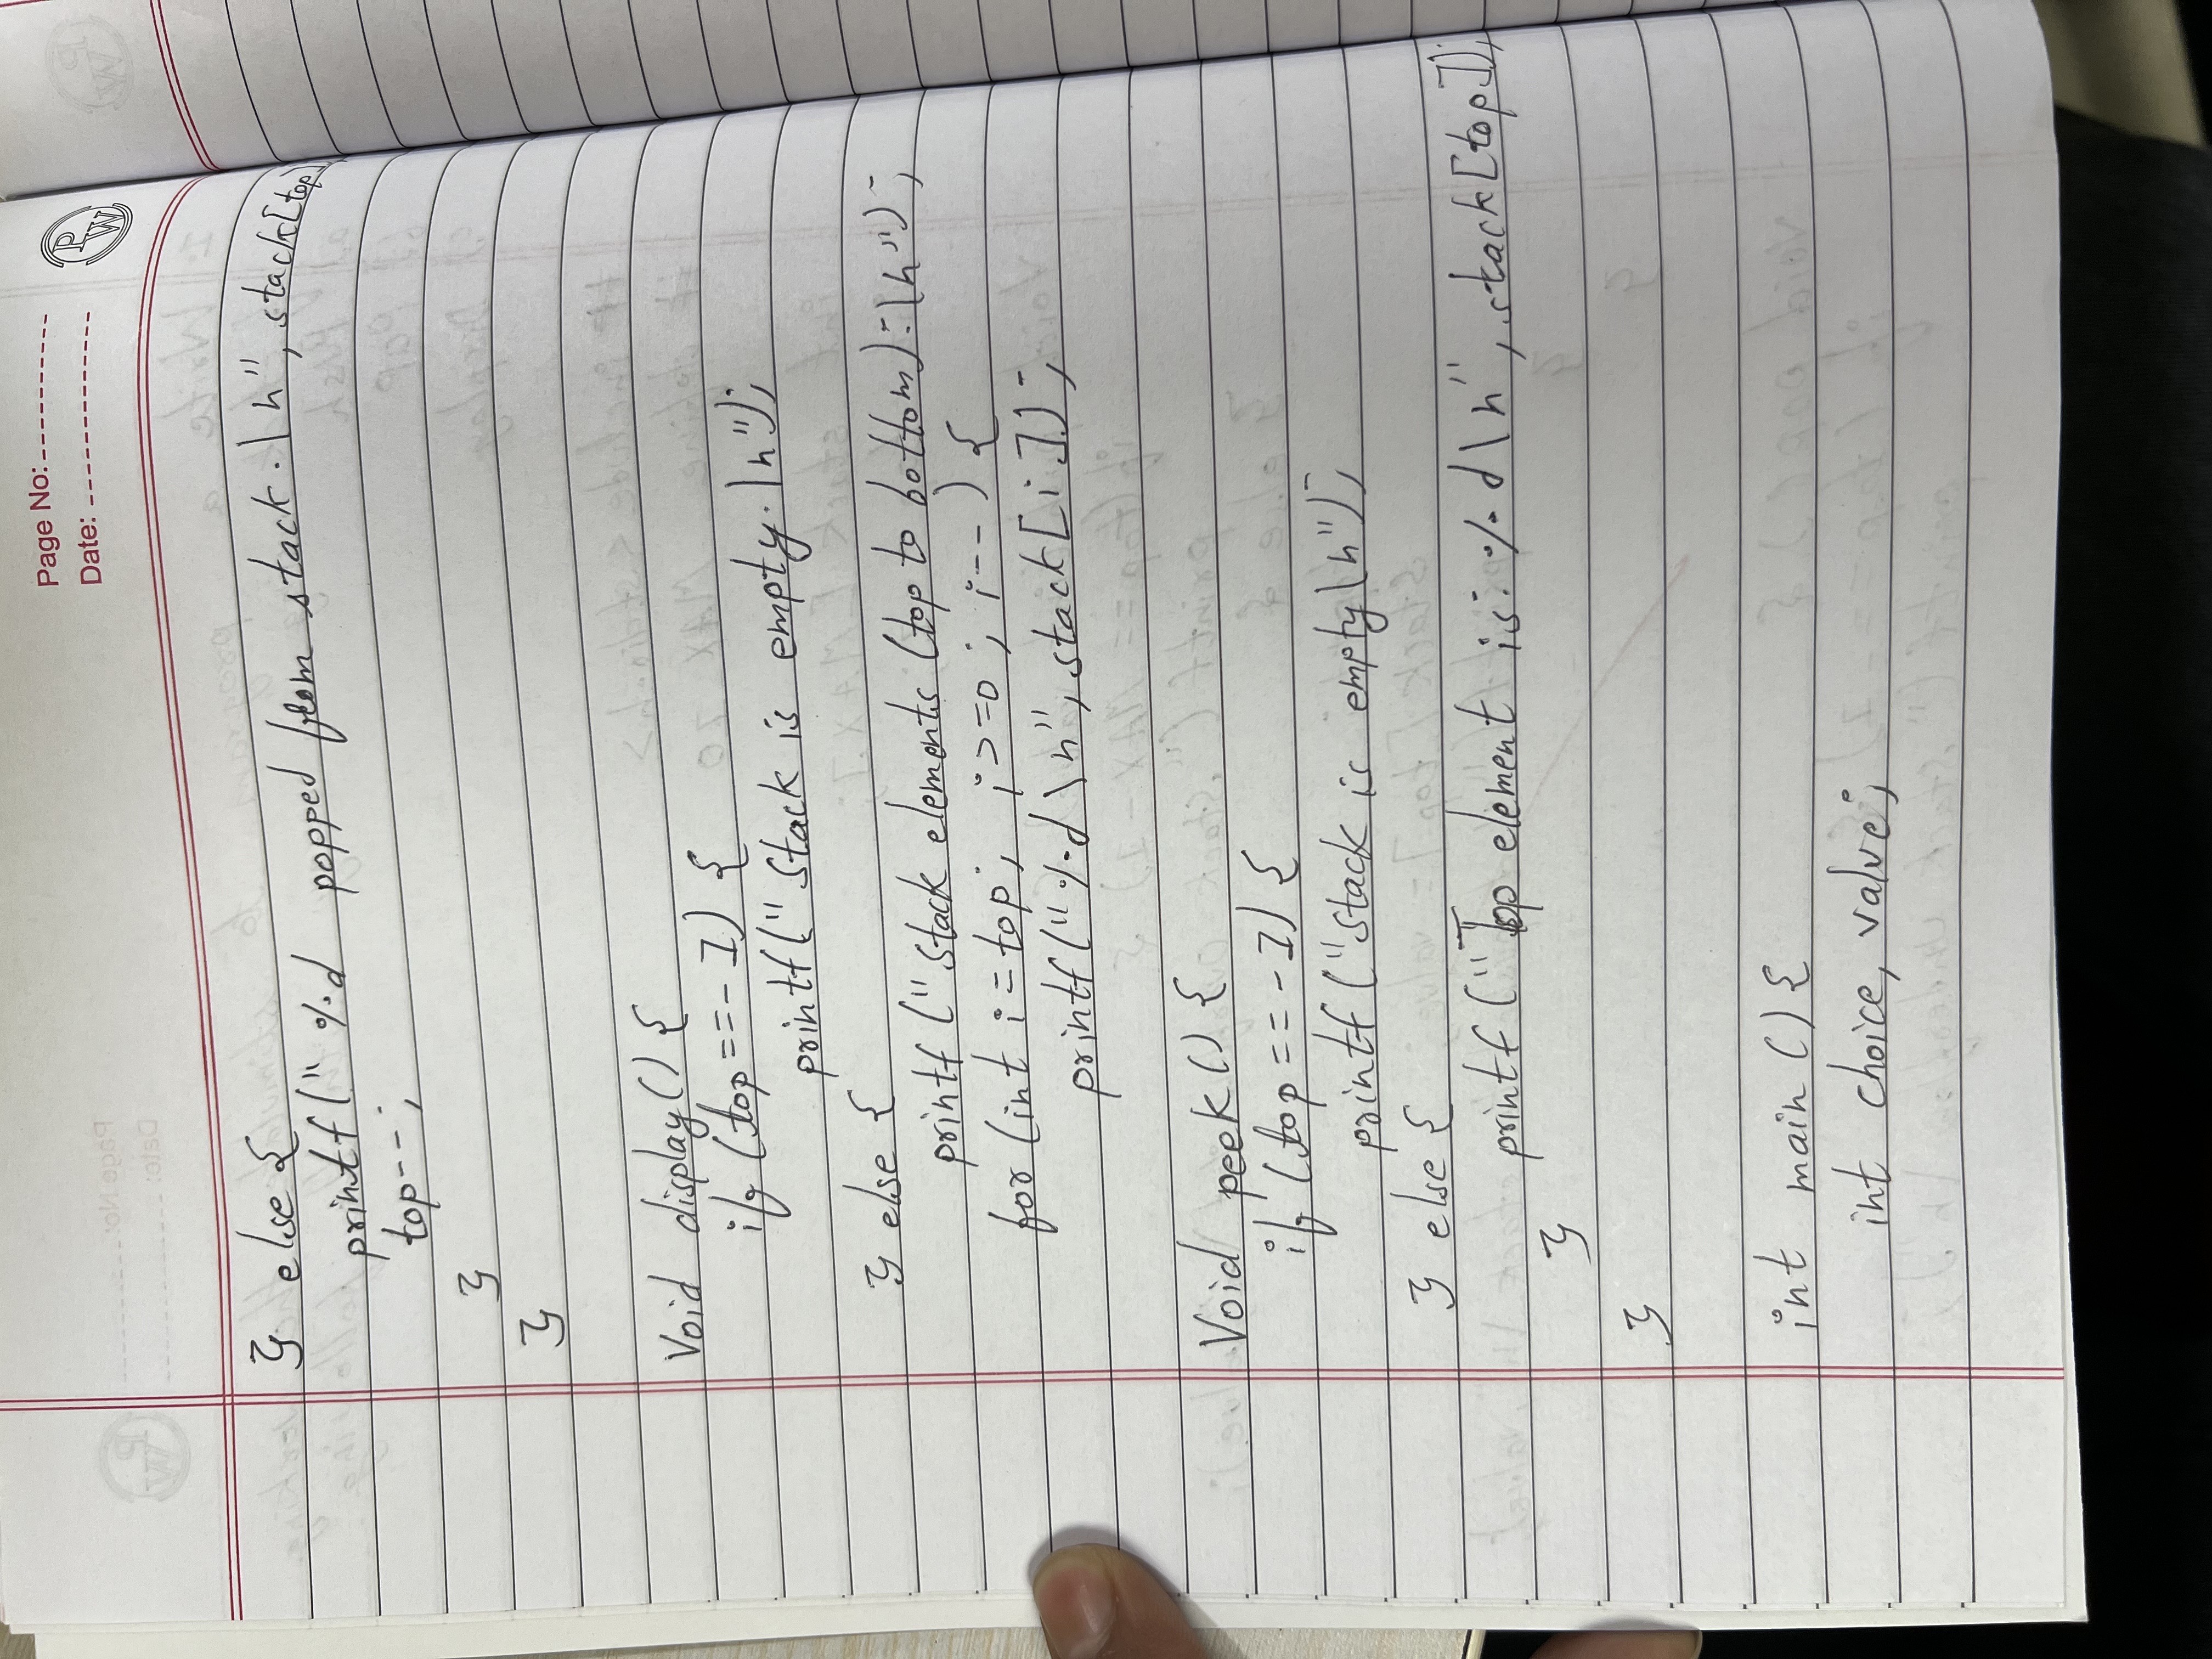 Page No:
Date:
PW
} else {
printf(" %d popped from stack.\n", stack[top]
top--;
}
}
Void display() {
if (top==-1) {
printf("Stack is empty.\n");
} else {
printf ("Stack elements (top to bottom):\n");
for (int i=top; i>=0; i--) {
printf("%d\n", stack[i]);
Void peek() {
if (top==-1) {
printf ("Stack is empty\n");
} else {
printf ("Top element is: %d\n", stack[top]);
}
}
int main () {
int choice, value;